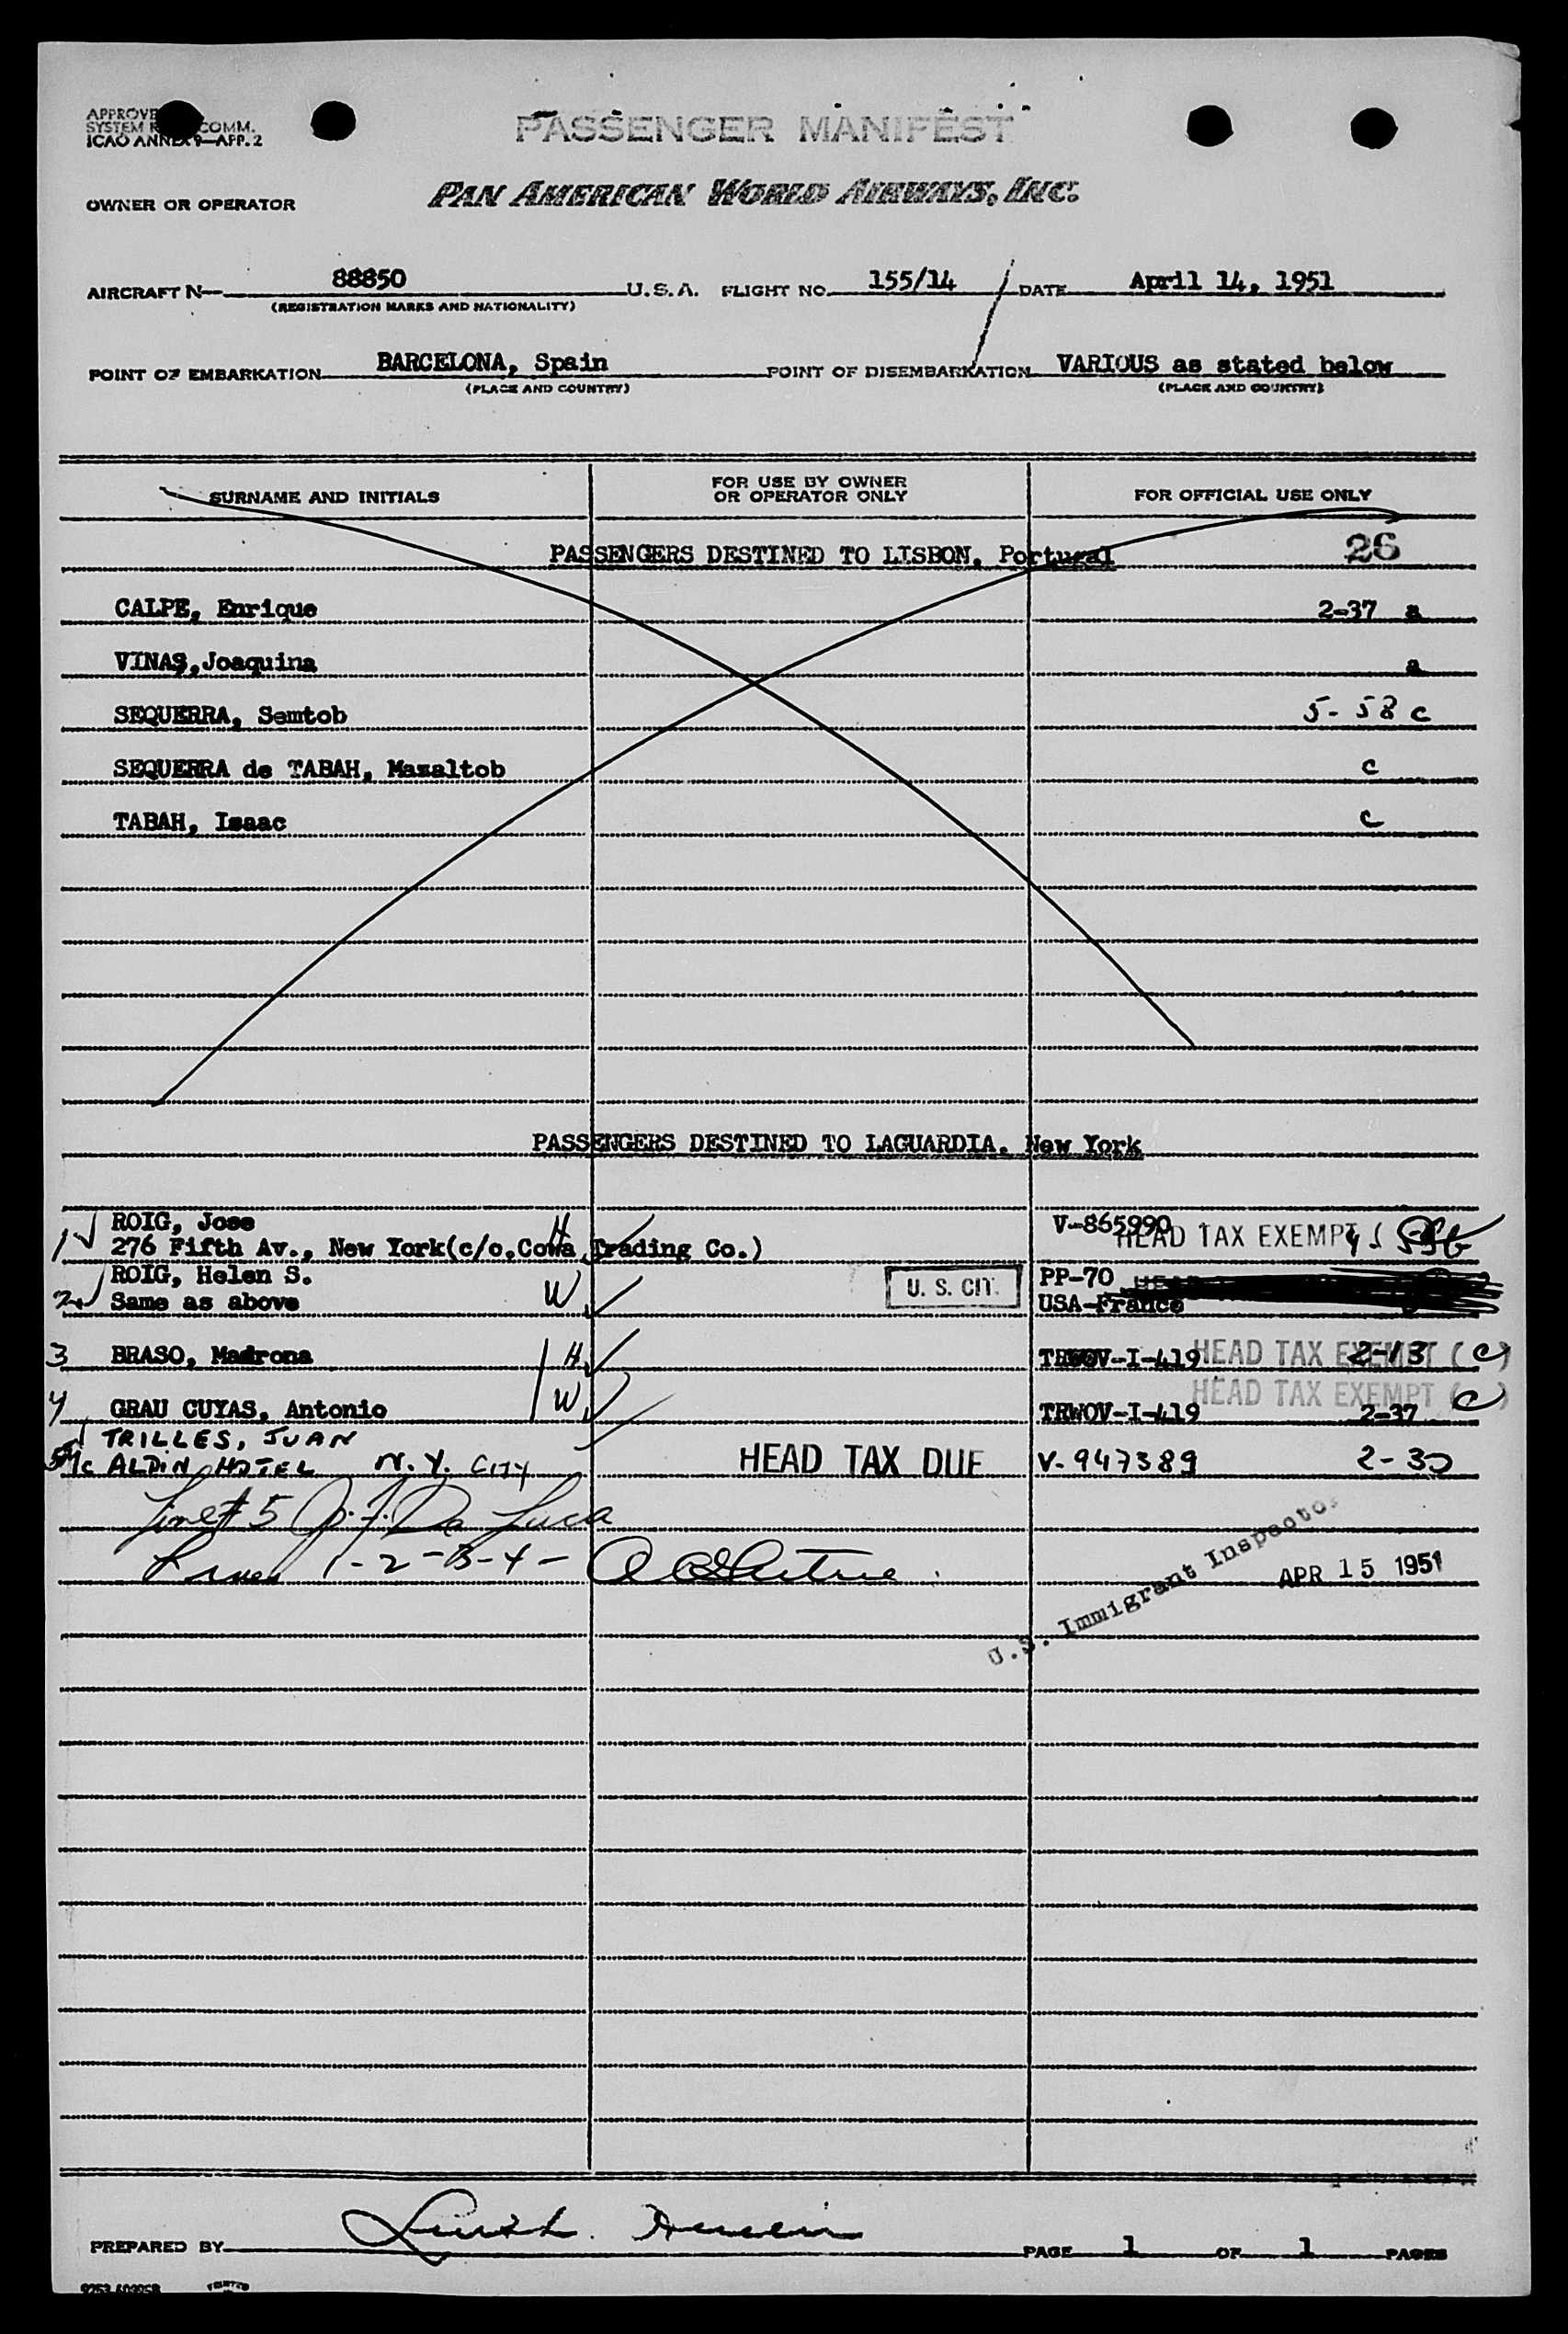 PASSENGER MANIFEST
SYSTEM COMM.
ICAO ANNEX 9—APP. 2
OWNER OR OPERATOR PAN AMERICAN WORLD AIRWAYS, INC.
AIRCRAFT N— 88850 U.S.A. FLIGHT NO. 155/14 DATE April 14, 1951
(REGISTRATION MARKS AND NATIONALITY)
POINT OF EMBARKATION BARCELONA, Spain POINT OF DISEMBARKATION VARIOUS as stated below
(PLACE AND COUNTRY) (PLACE AND COUNTRY)
SURNAME AND INITIALS FOR USE BY OWNER OR OPERATOR ONLY FOR OFFICIAL USE ONLY
PASSENGERS DESTINED TO LISBON, Portugal 26
CALPE, Enrique 2-37 a
VINAS, Joaquina a
SEQUERRA, Semtob 5-58 c
SEQUERRA de TABAH, Mazaltob c
TABAH, Isaac c
PASSENGERS DESTINED TO LAGUARDIA, New York
1 ROIG, Jose H V-865990 HEAD TAX EXEMPT
276 Fifth Av., New York(c/o. Trading Co.)
ROIG, Helen S. PP-70
2 Same as above W U. S. CIT. USA-France
3 BRASO, Madrona H TRWOV-I-419 HEAD TAX EXEMPT (C) 2-13
HEAD TAX EXEMPT (C)
4 GRAU CUYAS, Antonio W TRWOV-I-419 2-37
TRILLES, JUAN
5 Mc ALPIN HOTEL N.Y. CITY HEAD TAX DUE V-947389 2-30
Line # 5 De Luca
Lines 1-2-3-4-
U.S. Immigrant Inspector
APR 15 1951
PREPARED BY PAGE 1 OF 1 PAGES